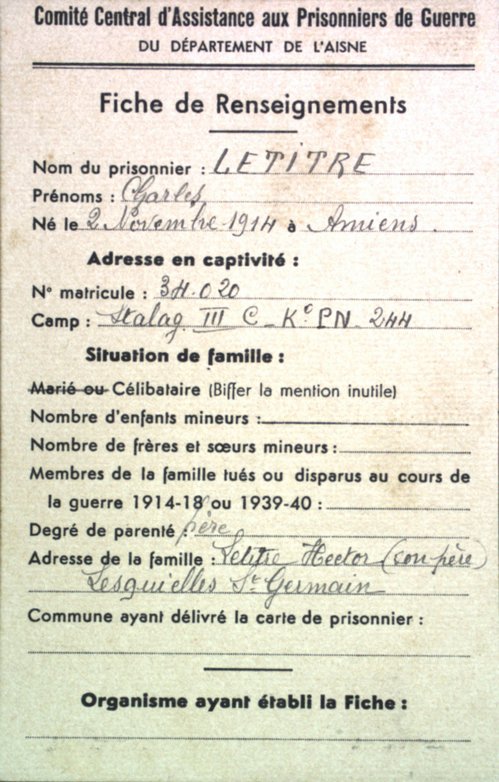 Comité Central d'Assistance aux Prisonniers de Guerre
DU DÉPARTEMENT DE L'AISNE
Fiche de Renseignements
Nom du prisonnier : LETITRE
Prénoms : Charles
Né le 2 Novembre 1914 à Amiens.
Adresse en captivité :
N° matricule : 34.020
Camp : Stalag III C - Kº PN. 244
Situation de famille :
Marié ou Célibataire (Biffer la mention inutile)
Nombre d'enfants mineurs :
Nombre de frères et sœurs mineurs :
Membres de la famille tués ou disparus au cours de
la guerre 1914-18 ou 1939-40 :
Degré de parenté : père
Adresse de la famille : Letitre Hector (son père)
Lesquielles St Germain
Commune ayant délivré la carte de prisonnier :
Organisme ayant établi la Fiche :